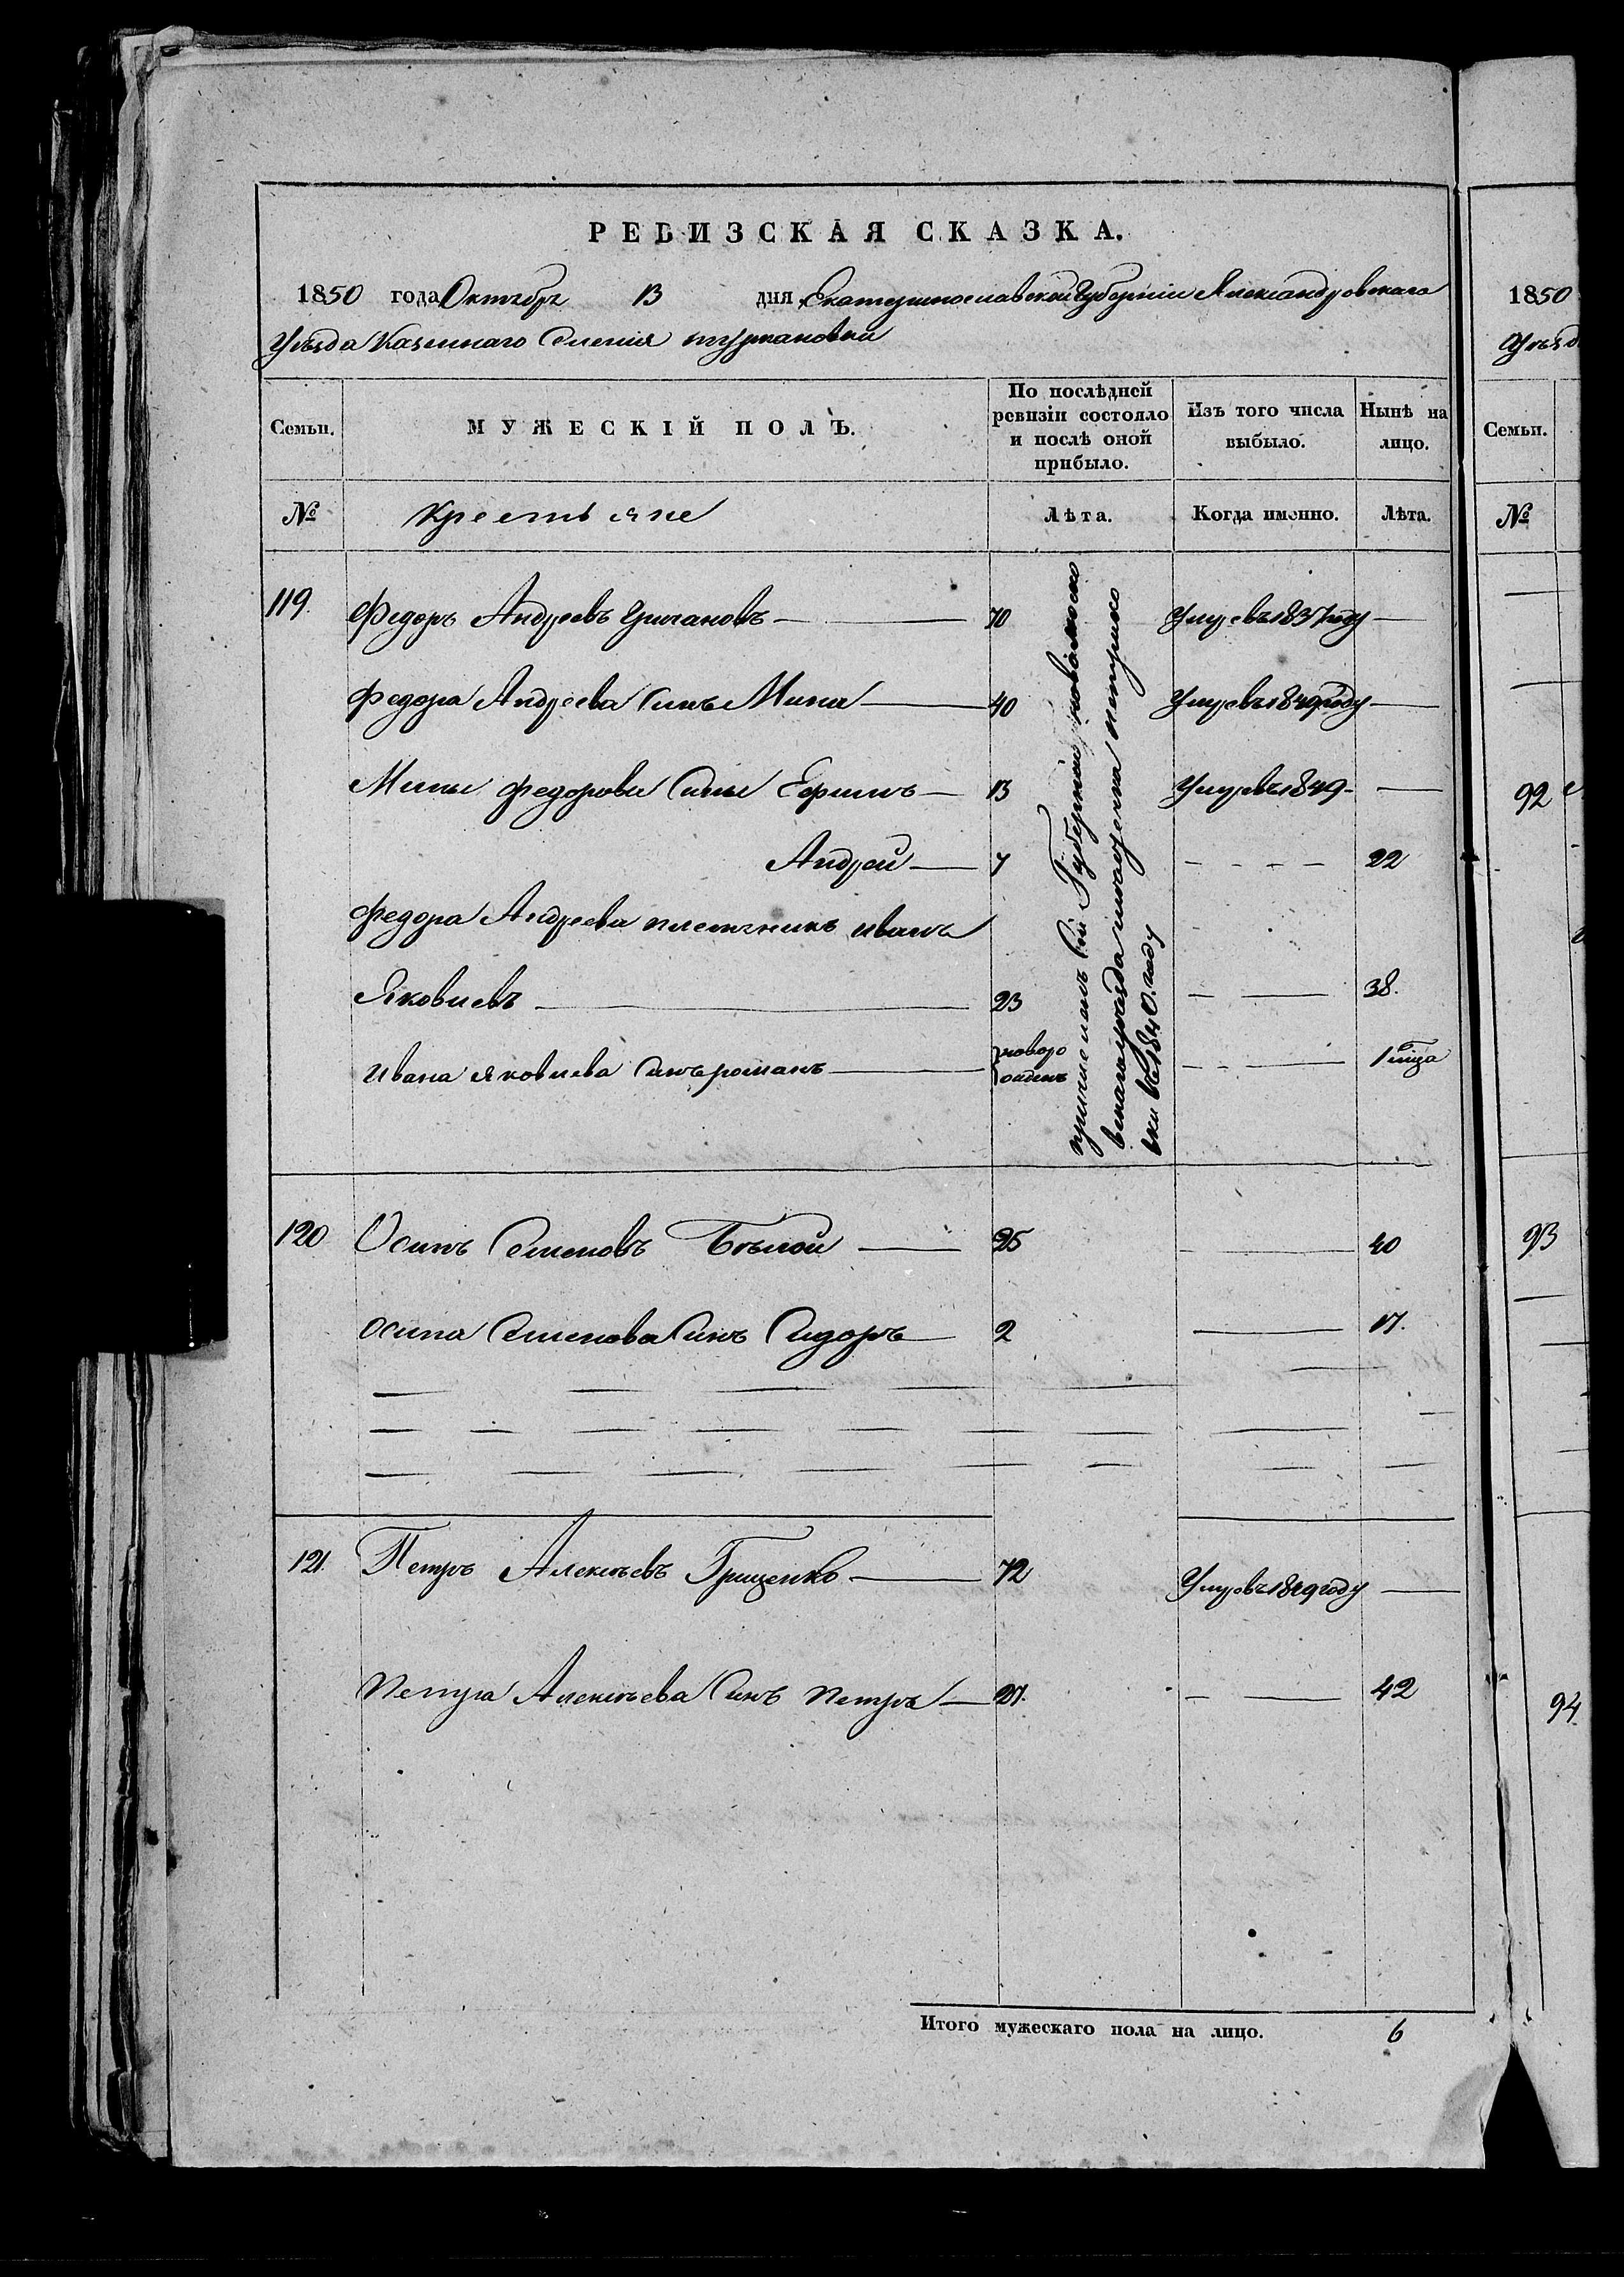 РЕВИЗСКАЯ СКАЗКА.
1850 года Октября 13 дня, Екатеринославской Губерніи Александровскаго
Уѣзда Казеннаго Селенія
Семьи.
МУЖЕСКІЙ ПОЛЪ.
По послѣдней ревизіи состояло и послѣ оной прибыло.
Изъ того числа выбыло.
Нынѣ на лицо.
№
Крестьяне
Лѣта.
Когда именно.
Лѣта.
119. Федоръ Андреевъ 70 Умеръ въ 1837 году
Федора Андреева Сынъ Мина 40 Умеръ въ 1849 году
Мины Федорова Сыны Ефимъ 13 Умеръ въ 1849
Андрей 7 22
Федора Андреева племянникъ иванъ
Яковлевъ 23 38.
ивана яковлева Сынъ романъ новоро 1
Губерніи
въ 1840. году
120 Осипъ Семеновъ Бѣлой 25 40
осипа Семенова Сынъ Сидоръ 2 17.
121. Петръ Алексѣевъ Гриценко 72 Умеръ въ 1849 году
Петра Алексѣева Сынъ Петръ 27. 42
Итого мужескаго пола на лицо. 6
1850
Уѣзд
Семьи.
№
92
93
94